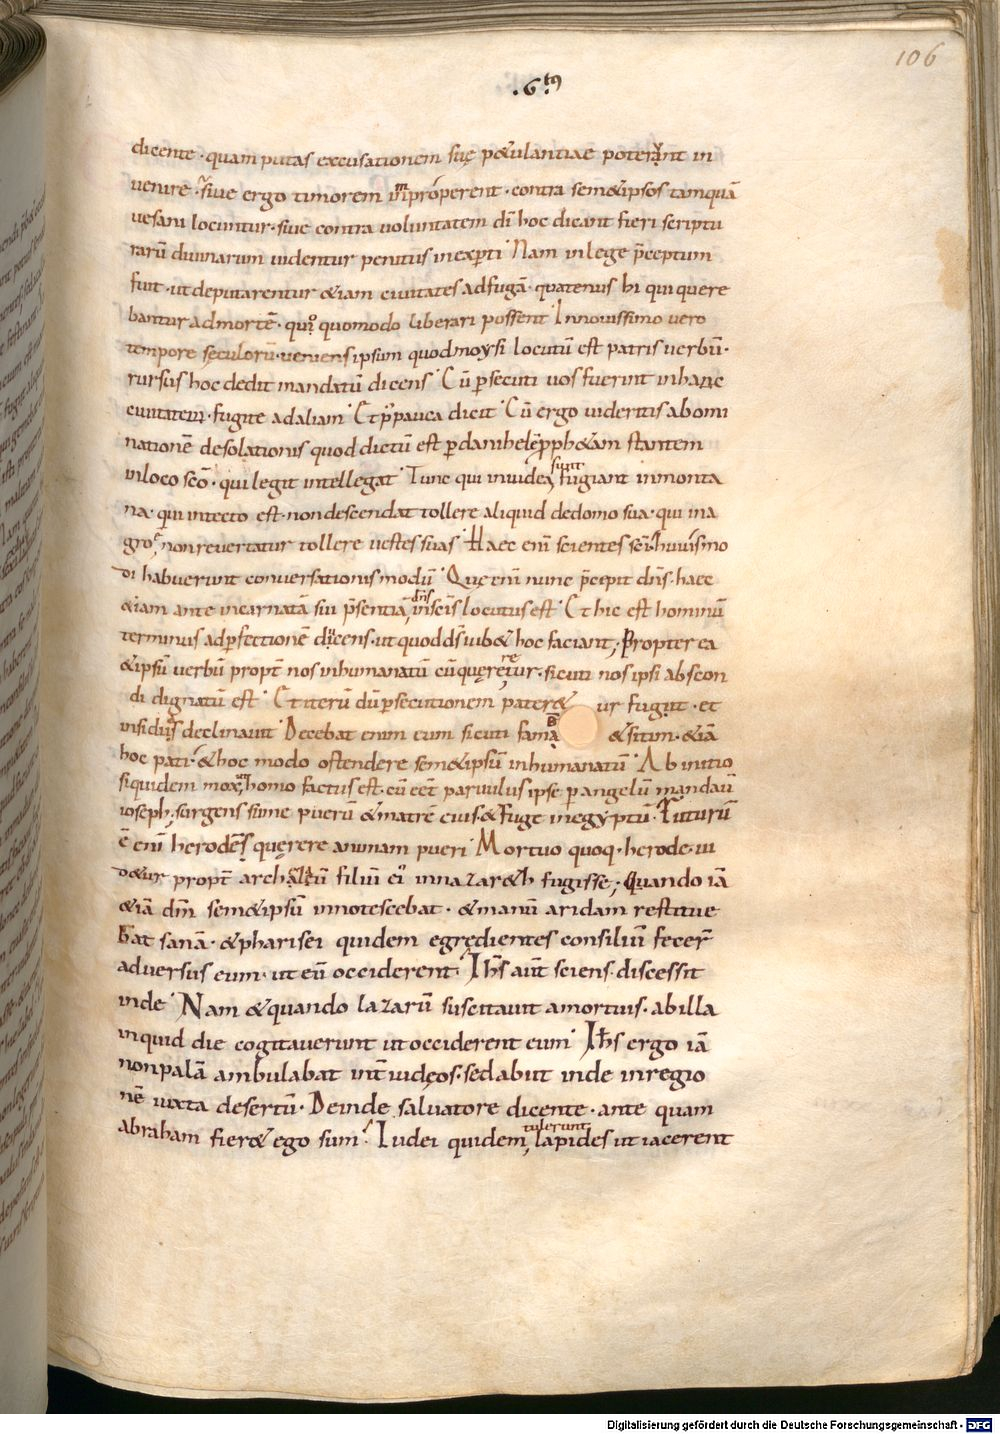 106
.6.tꝰ
dicente · quam putas excusationem suę p&ulantiae poterant in
uenire · siue ergo timorem improperent · contra sem&ipsos tamquā
uesani locuntur · siue contra uoluntatem dī hoc dicant fieri scriptu
rarū diuinarum uidentur penitus inexperti Nam inlege p̄ceptum
fuit · ut deputarentur &iam ciuitates adfugā · quatenus hi qui quere
bantur admortē · quoquomodo liberari possent Innouissimo uero
tempore seculorū · ueniens ipsum quod moysi locutū est patris uerbū ·
rursus hoc dedit mandatū dicens Cū psecuti uos fuerint in hanc
ciuitatem · fugite adaliam Et p̱ pauca dicit Cū ergo uideritis abomi
nationē desolationis quod dictū est p danihelē pph&am stantem
inloco scō · qui legit intellegat Tunc qui iniudea sunt fugiant inmonta
na · qui intecto est · non descendat tollere aliquid dedomo sua · qui ina
gro · non reuertatur tollere uestes suas Haec enī scientes scī huiusmo
di habuerunt conuersationis modū Quę enī nunc p̄cepit dn̄s · haec
&iam ante incarnatā sui p̄sentiā dn̄s inscīs locutus est Et hic est hominū
terminus adpfectionē ducens · ut quod ds̄ iub& hoc faciant ; Propter ea
&ipsū uerbū propt̄ nos inhumanatū cū quęreretur · sicuti nos ipsi abscon
di dignatū est Et iterū dū psecutionem pater&ur fugiit · et
insidias declinauit Decebat enim eum sicuti famē &sitim · &iā
hoc pati · &hoc modo ostendere sem&ipsū inhumanatū Ab initio
siquidem mox ut homo factus est · cū eēt paruulus ipse p angelū mandaū
ioseph · surgens sume puerū &matrē eius · & fuge inegyptū · Futurū
ē enī herodes quęrere animam pueri Mortuo quoq · herode · ui
d&ur propt̄ archelaū filiū eiꝰ innazar&h fugisse ; Quando iā
&iā dm̄ sem&ipsū innotescebat · &manū aridam restitue
bat sanā · &pharisei quidem egredientes consiliū fecer̄
aduersus eum · ut eū occiderent · Ihs̄ aūt sciens · discessit
inde Nam &quando lazarū suscitauit amortuis · abilla
inquid die cogitauerunt ut occiderent eum Ihs̄ ergo iā
non palā ambulabat int̄ iudęos · sed abiit inde inregio
nē iuxta desertū · Deinde saluatore dicente · ante quam
abraham fier& ego sum · Iudei quidem tulerunt lapides ut iacerent
Digitalisierung gefördert durch die Deutsche Forschungsgemeinschaft - DFG